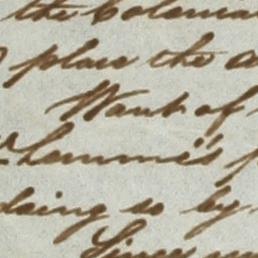 the Colonia
place the a
Want of
Lammi's
doing so by
Since